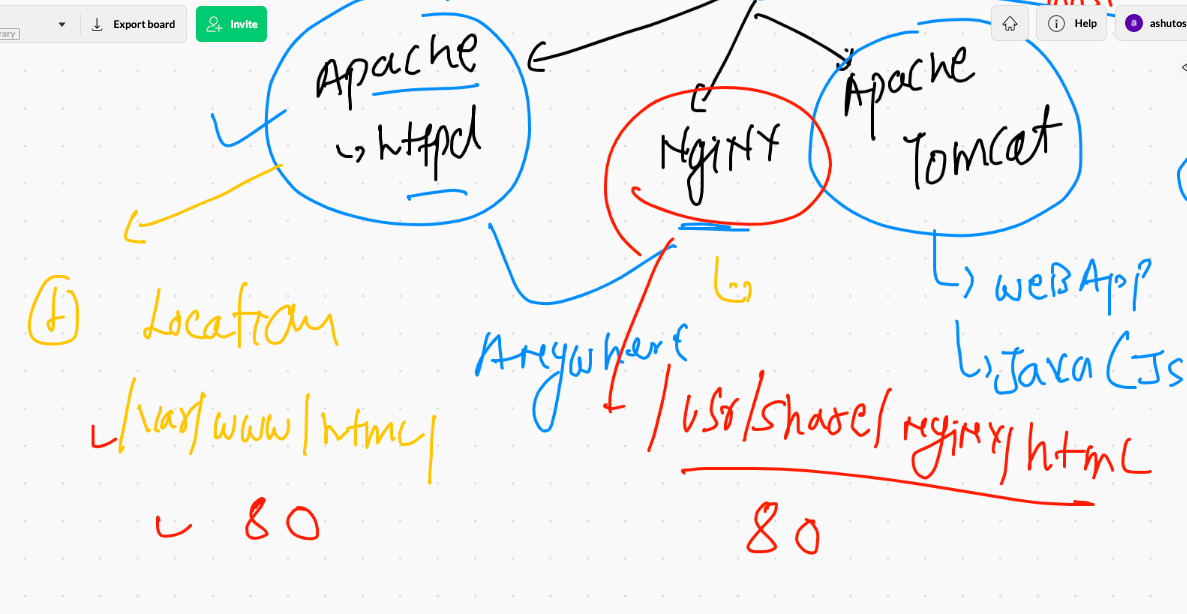 rary
Export board
Invite
Help
a
ashutos
Apache
httpd
Nginx
Apache
Tomcat
webApp
Java (Js
Anywhere
1
Location
/var/www/html/
80
/usr/share/nginx/html
80